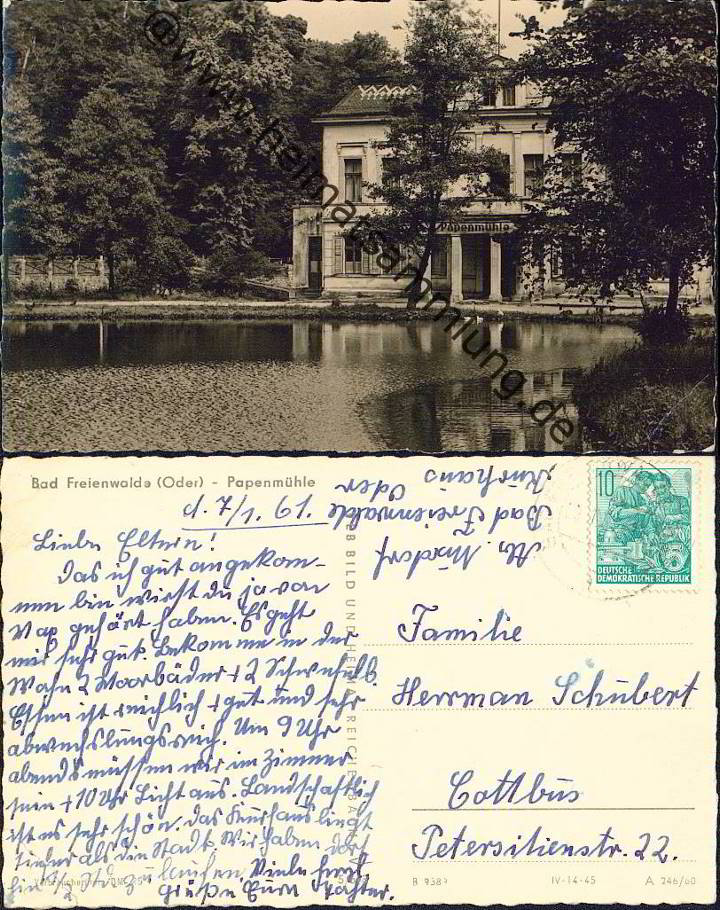 @www.heimatsammlung.de
Papenmühle
Bad Freienwalde (Oder) - Papenmühle
d. 7/1. 61.
Liebe Eltern!
Das ich gut angekom-
men bin wirst du ja von
gehört haben. Es geht
mir sehr gut. Bekomme in der
2 Moorbäder + 2 Schwefelb.
Essen ist reichlich + gut und sehr
abwechslungsreich. Um 9 Uhr
abends müssen wir im Zimmer
sein + 10 Uhr Licht aus. Landschaftlich
ist es sehr schön. Das Kurhaus liegt
als die Stadt. Wir haben dort
hin 1/2 Std. zu laufen. Viele herzl.
Grüße Eure Tochter.
Bad Freienwalde
Oder
Kurhaus
10
DEUTSCHE
DEMOKRATISCHE REPUBLIK
Familie
Herrman Schubert
Cottbus
Petersilienstr. 22.
IV-14-45
A 246/60